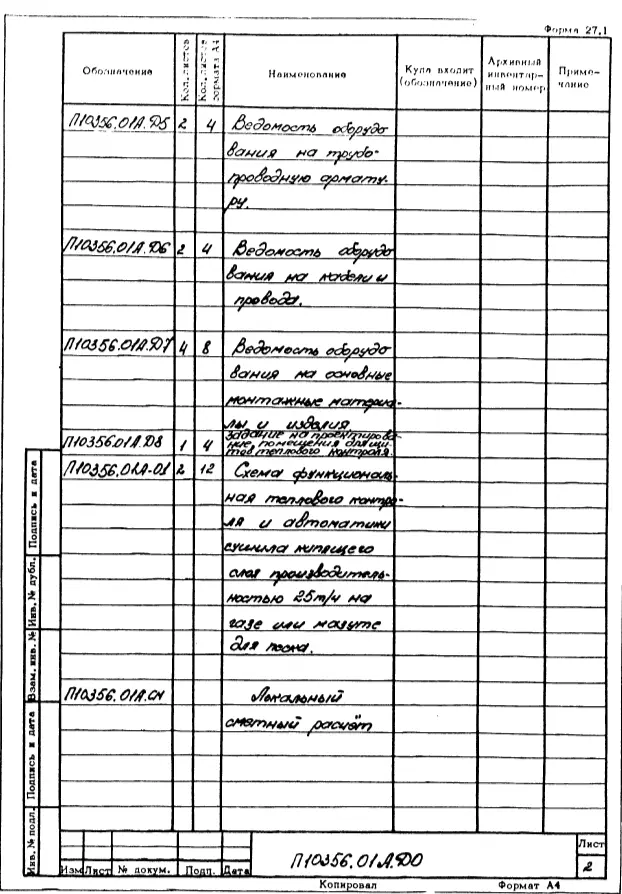 Форма 27.1
Обозначение
Кол. листов
Кол. листов формата А4
Наименование
Куда входит (обозначение)
Архивный инвентар- ный номер
Приме- чание
П10356.01А.Д5 2 4 Ведомость оборудо
вания на трубо-
проводную армату-
ру.
П10356.01А.Д6 2 4 Ведомость оборудо
вания на кабели и
провода.
П10356.01А.Д7 4 8 Ведомость оборудо
вания на основные
монтажные материа-
лы и изделия
П10356.01А.Д8 1 4 Задание на проектирова-
ние помещения для щи-
тов теплового контроля.
П10356.01А-01 2 12 Схема функциональ-
ная теплового контро-
ля и автоматики
сушила кипящего
слоя производитель-
ностью 25т/ч на
газе или мазуте
для песка.
П10356.01А.СМ Локальный
сметный расчёт
Подпись и дата
Инв. № дубл.
Взам. инв. №
Подпись и дата
Инв. № подл.
Изм Лист № докум. Подп. Дата
П10356.01А.ДО
Лист
2
Копировал Формат А4